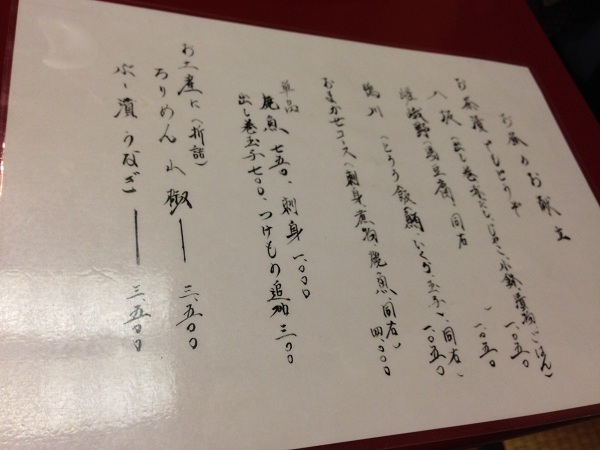 お昼のお献立
お茶漬
一、〇五〇
八坂（出し巻
小鉢、漬物、ごはん）
一、〇五〇
嵯峨野（湯豆腐、同右）
一、〇五〇
鴨川（とろろ飯、
いくら、玉子、同右）
おまかせコース（刺身、煮物、焼魚、同右）
四、〇〇〇
単品
焼魚 七五〇、刺身 一、〇〇〇
出し巻玉子 七〇〇、つけもの追加 三〇〇
お土産に（折詰）
ちりめん山椒 ── 三、五〇〇
ぶー漬うなぎ ── 三、五〇〇